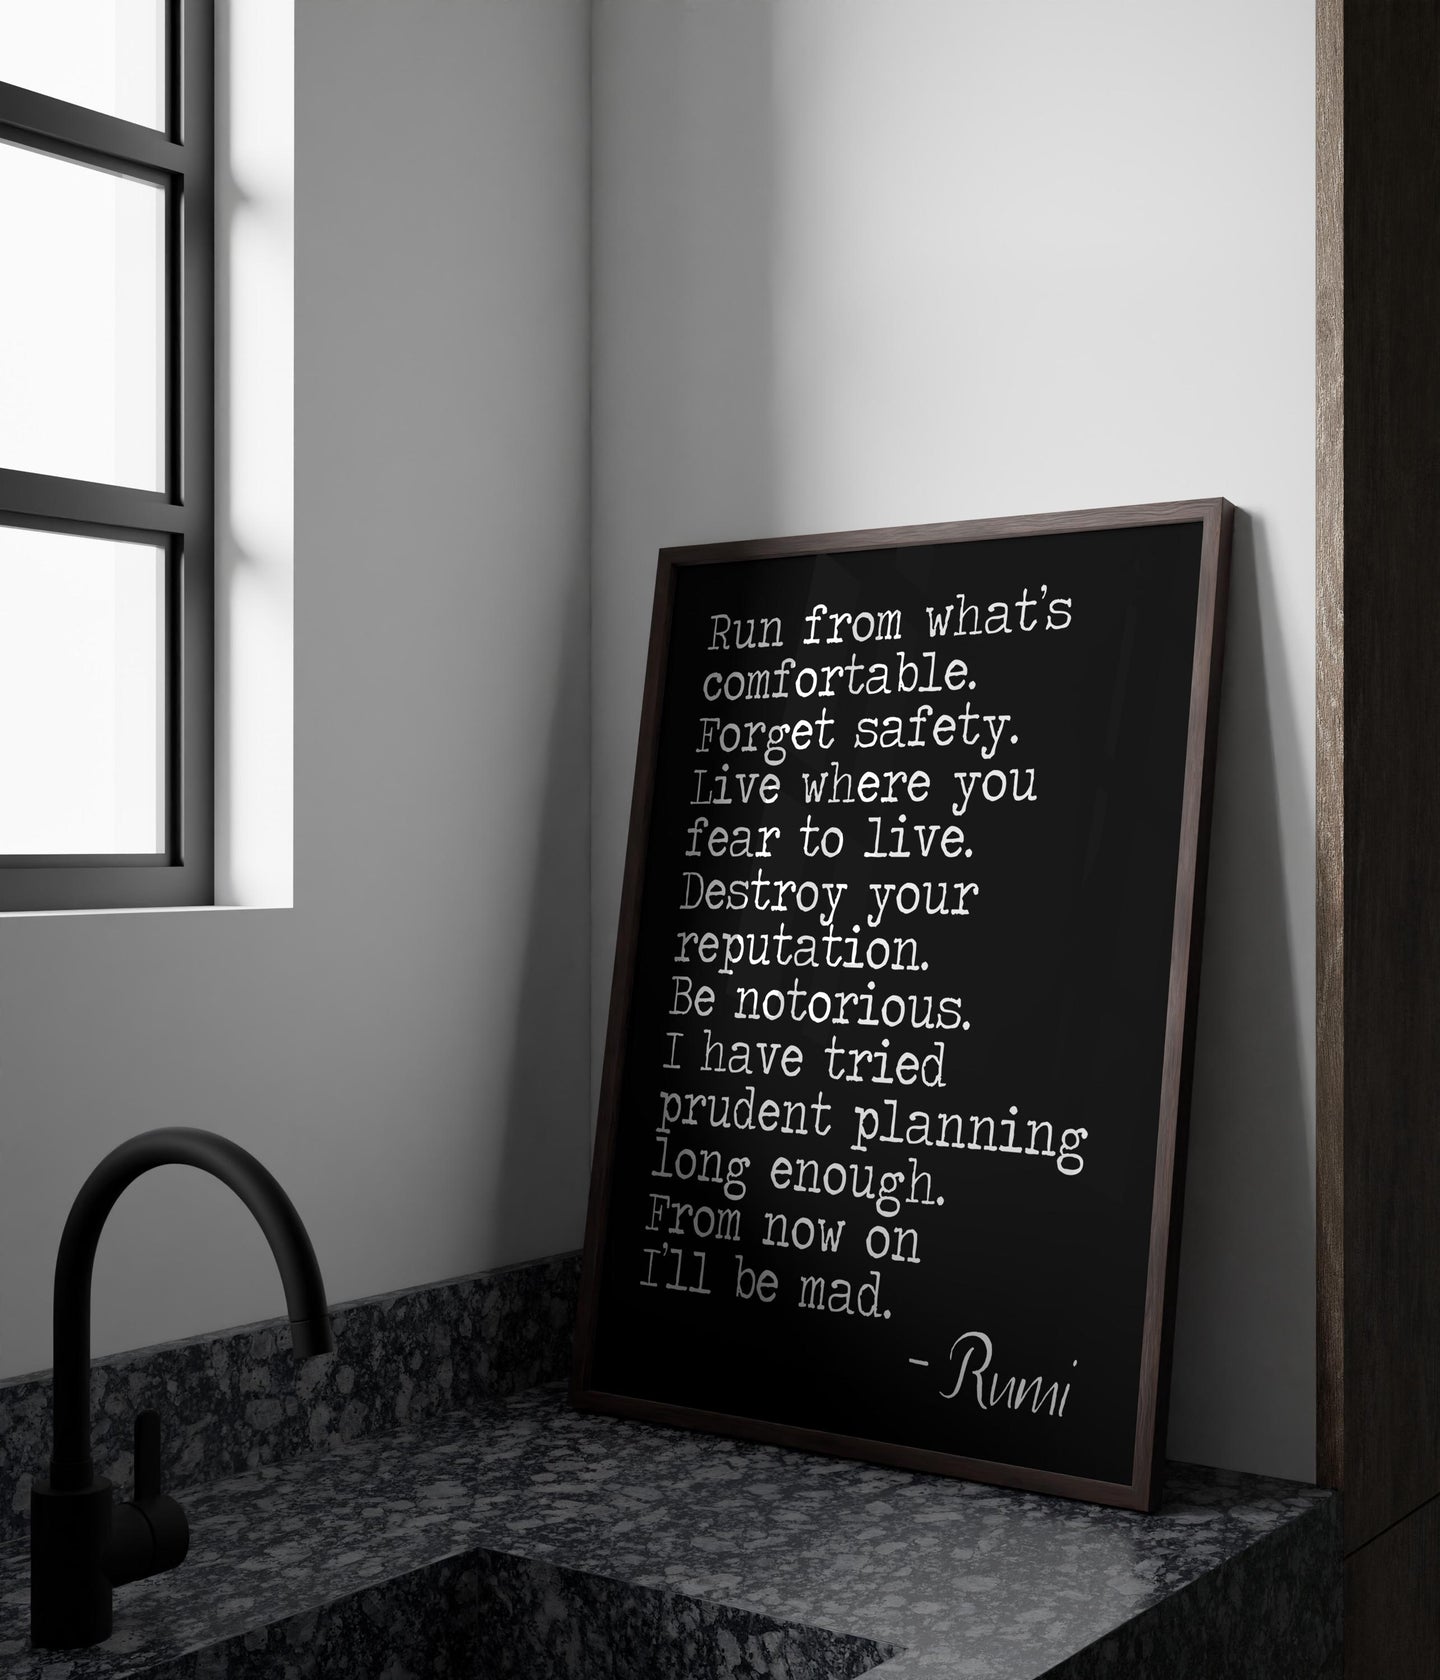 Run from what's
comfortable.
Forget safety.
Live where you
fear to live.
Destroy your
reputation.
Be notorious.
I have tried
prudent planning
long enough.
From now on
I'll be mad.
- Rumi